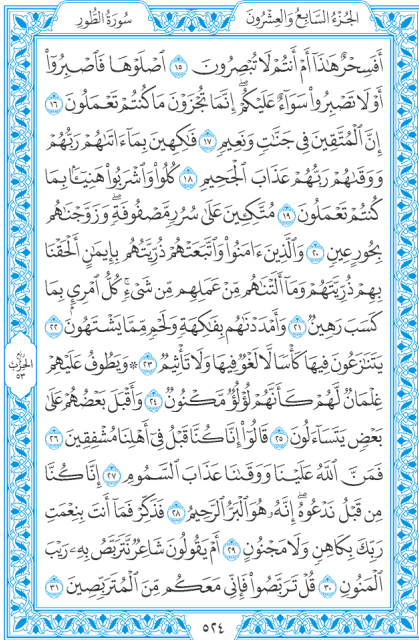 الجُزْءُ السَّابِعُ وَالعِشْرُونَ
سُورَةُ الطُّورِ
أَفَسِحْرٌ هَٰذَآ أَمْ أَنتُمْ لَا تُبْصِرُونَ ١٥ ٱصْلَوْهَا فَٱصْبِرُوٓا۟
أَوْ لَا تَصْبِرُوا۟ سَوَآءٌ عَلَيْكُمْ ۖ إِنَّمَا تُجْزَوْنَ مَا كُنتُمْ تَعْمَلُونَ ١٦
إِنَّ ٱلْمُتَّقِينَ فِى جَنَّٰتٍ وَنَعِيمٍ ١٧ فَٰكِهِينَ بِمَآ ءَاتَىٰهُمْ رَبُّهُمْ
وَوَقَىٰهُمْ رَبُّهُمْ عَذَابَ ٱلْجَحِيمِ ١٨ كُلُوا۟ وَٱشْرَبُوا۟ هَنِيٓـًٔۢا بِمَا
كُنتُمْ تَعْمَلُونَ ١٩ مُتَّكِـِٔينَ عَلَىٰ سُرُرٍ مَّصْفُوفَةٍ ۖ وَزَوَّجْنَٰهُم
بِحُورٍ عِينٍ ٢٠ وَٱلَّذِينَ ءَامَنُوا۟ وَٱتَّبَعَتْهُمْ ذُرِّيَّتُهُم بِإِيمَٰنٍ أَلْحَقْنَا
بِهِمْ ذُرِّيَّتَهُمْ وَمَآ أَلَتْنَٰهُم مِّنْ عَمَلِهِم مِّن شَىْءٍ ۚ كُلُّ ٱمْرِئٍۭ بِمَا
كَسَبَ رَهِينٌ ٢١ وَأَمْدَدْنَٰهُم بِفَٰكِهَةٍ وَلَحْمٍ مِّمَّا يَشْتَهُونَ ٢٢
يَتَنَٰزَعُونَ فِيهَا كَأْسًا لَّا لَغْوٌ فِيهَا وَلَا تَأْثِيمٌ ٢٣ ۞ وَيَطُوفُ عَلَيْهِمْ
رُبْعُ الحِزْبِ ٥٣
غِلْمَانٌ لَّهُمْ كَأَنَّهُمْ لُؤْلُؤٌ مَّكْنُونٌ ٢٤ وَأَقْبَلَ بَعْضُهُمْ عَلَىٰ
بَعْضٍ يَتَسَآءَلُونَ ٢٥ قَالُوٓا۟ إِنَّا كُنَّا قَبْلُ فِىٓ أَهْلِنَا مُشْفِقِينَ ٢٦
فَمَنَّ ٱللَّهُ عَلَيْنَا وَوَقَىٰنَا عَذَابَ ٱلسَّمُومِ ٢٧ إِنَّا كُنَّا
مِن قَبْلُ نَدْعُوهُ ۖ إِنَّهُۥ هُوَ ٱلْبَرُّ ٱلرَّحِيمُ ٢٨ فَذَكِّرْ فَمَآ أَنتَ بِنِعْمَتِ
رَبِّكَ بِكَاهِنٍ وَلَا مَجْنُونٍ ٢٩ أَمْ يَقُولُونَ شَاعِرٌ نَّتَرَبَّصُ بِهِۦ رَيْبَ
ٱلْمَنُونِ ٣٠ قُلْ تَرَبَّصُوا۟ فَإِنِّى مَعَكُم مِّنَ ٱلْمُتَرَبِّصِينَ ٣١
٥٢٤